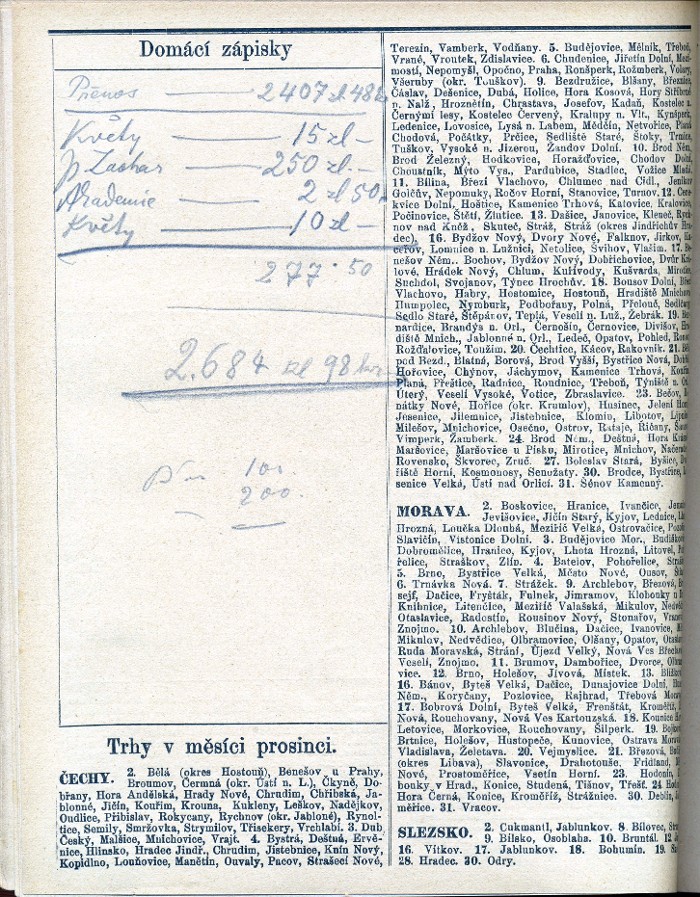 Domácí zápisky
Přenos 2407 zl 48
Květy 15 zl –
250 zl –
Akademie 2 zl 50
Květy 10 zl –
277·50
2.684 zl 98 kr
100
200
Trhy v měsíci prosinci.
ČECHY. 2. Bělá (okres Hostouň), Benešov u Prahy,
Broumov, Čermná (okr. Ústí n. L.), Čkyně, Do-
břany, Hora Andělská, Hrady Nové, Chrudim, Chřibská, Ja-
blonné, Jičín, Kouřim, Krouna, Kukleny, Leškov, Nadějkov,
Oudlice, Přibislav, Rokycany, Rychnov (okr. Jabloné), Rynol-
tice, Semily, Smržovka, Strymilov, Třisekery, Vrchlabí. 3. Dub
Český, Malšice, Mnichovice, Vrajt. 4. Bystrá, Deštná, Ervě-
nice, Hlinsko, Hradec Jindř., Chrudim, Jistebnice, Knín Nový,
Kopidlno, Louňovice, Manětín, Ouvaly, Pacov, Strašecí Nové,
Terezín, Vamberk, Vodňany. 5. Budějovice, Mělník,
Vrané, Vroutek, Zdislavice. 6. Chudenice, Jiřetín Dolní,
mostí, Nepomyšl, Opočno, Praha, Ronšperk, Rožmberk,
Všeruby (okr. Touškov). 9. Bezdružice, Blšany,
Čáslav, Dešenice, Dubá, Holice, Hora Kosová, Hory
n. Nalž, Hroznětín, Chrastava, Josefov, Kadaň, Kostelec
Černými lesy, Kostelec Červený, Kralupy n. Vlt.,
Ledenice, Lovosice, Lysá n. Labem, Měděín, Netvořice,
Chodová, Počátky, Prčice, Sedliště Staré, Štoky,
Tuškov, Vysoké n. Jizerou, Žandov Dolní. 10. Brod
Brod Železný, Hodkovice, Horažďovice, Chodov
Choustník, Mýto Vys., Pardubice, Stadlec, Vožice
11. Bílina, Březí Vlachovo, Chlumec nad Cidl.,
Golčův, Nepomuky, Rožov Horní, Stanovice, Turnov. 12.
kvice Dolní, Hoštice, Kamenice Trhová, Katovice,
Počinovice, Štětí, Žlutice. 13. Dašice, Janovice, Kleneč,
nov nad Kněž., Skuteč, Stráž, Stráž (okres Jindřichův
16. Bydžov Nový, Dvory Nové, Falknov, Jirkov,
Lomnice n. Lužnicí, Netolice, Švihov, Vlašim. 17.
nešov Něm., Bochov, Bydžov Nový, Dobřichovice, Dvůr
lové, Hrádek Nový, Chlum, Kuřívody, Kušvarda,
Suchdol, Svojanov, Týnec Hrochův. 18. Bousov Dolní,
Vlachovo, Habry, Hostomice, Hostouň, Hradiště
Humpolec, Nymburk, Podbořany, Polná, Přelouč,
Sedlo Staré, Štěpánov, Teplá, Veselí n. Luž., Žebrák. 19.
nardice, Brandýs n. Orl., Černošín, Černovice, Divišov,
diště Mnich., Jablonné n. Orl., Ledeč, Opatov, Pohled,
Rožďalovice, Toužim. 20. Čechtice, Kácov, Rakovník. 21.
pod Bezd., Blatná, Borová, Brod Vyšší, Bystřice Nová,
Hořovice, Chýnov, Jáchymov, Kamenice Trhová,
Planá, Přeštice, Radnice, Rondnice, Třeboň, Týniště
Úterý, Veselí Vysoké, Votice, Zbraslavice. 23. Bečov,
nátky Nové, Hořice (okr. Krumlov), Husinec, Jelení
Jesenice, Jílemnice, Jistebnice, Klomín, Libotov,
Milešov, Mnichovice, Osečno, Ostrov, Rataje, Říčany,
Vimperk, Žamberk. 24. Brod Něm., Deštná, Hora
Maršovice, Maršovice u Písku, Mirotice, Mnichov,
Rovensko, Škvorec, Zruč. 27. Boleslav Stará,
říště Horní, Kosmonosy, Senožaty. 30. Brodce,
senice Velká, Ústí nad Orlicí. 31. Šénov Kamenný.
MORAVA. 2. Boskovice, Hranice, Ivančice,
Jevišovice, Jičín Starý, Kyjov, Lednice,
Hrozná, Loučka Dlouhá, Meziříč Velká, Ostrovačice,
Slavičín, Vistonice Dolní. 3. Budějovice Mor.,
Dobromělice, Hranice, Kyjov, Lhota Hrozná, Litovel,
řelice, Straškov, Zlín. 4. Batelov, Pohořelice,
5. Brno, Bystřice Velká, Město Nové, Ousov,
6. Trnávka Nová. 7. Strážek. 9. Archlebov, Březová,
sejf, Dačice, Fryšták, Fulnek, Jimramov, Klobouky
Knihnice, Litenčice, Meziříč Valašská, Mikulov,
Otaslavice, Radostín, Rousínov Nový, Stonařov,
Znojmo. 10. Archlebov, Blučina, Dačice, Ivanovice,
Mikulov, Nedvědice, Olbramovice, Olšany, Opatov,
Ruda Moravská, Strání, Újezd Velký, Nová Ves
Veselí, Znojmo. 11. Brumov, Dambořice, Dvorce,
vice. 12. Brno, Holešov, Jívová, Místek. 13.
16. Bánov, Byteš Velká, Dačice, Dunajovice Dolní,
Něm., Koryčany, Pozlovice, Rajhrad, Třebová
17. Bobrová Dolní, Byteš Velká, Frenštát, Kroměříž,
Nová, Rouchovany, Nová Ves Kartouzská. 18. Kounice
Letovice, Morkovice, Rouchovany, Šilperk. 19.
Brtnice, Holešov, Hustopeče, Kunovice, Ostrava
Vladislav, Želetava. 20. Vejmyslice. 21. Březová,
(okres Libava), Slavonice, Drahotouše. Fridland,
Nové, Prostoměřice, Vsetín Horní. 23. Hodonín,
bonky v Hrad., Konice, Studená, Tišnov, Třešť. 24
Hora Černá, Konice, Kroměříž, Strážnice. 30. Deblín,
měřice. 31. Vracov.
SLEZSKO. 2. Cukmantl, Jablunkov. 8. Bílovec,
9. Bílsko, Osoblaha. 10. Bruntál. 12.
16. Vítkov. 17. Jablunkov. 18. Bohumín. 19.
28. Hradec. 30. Odry.